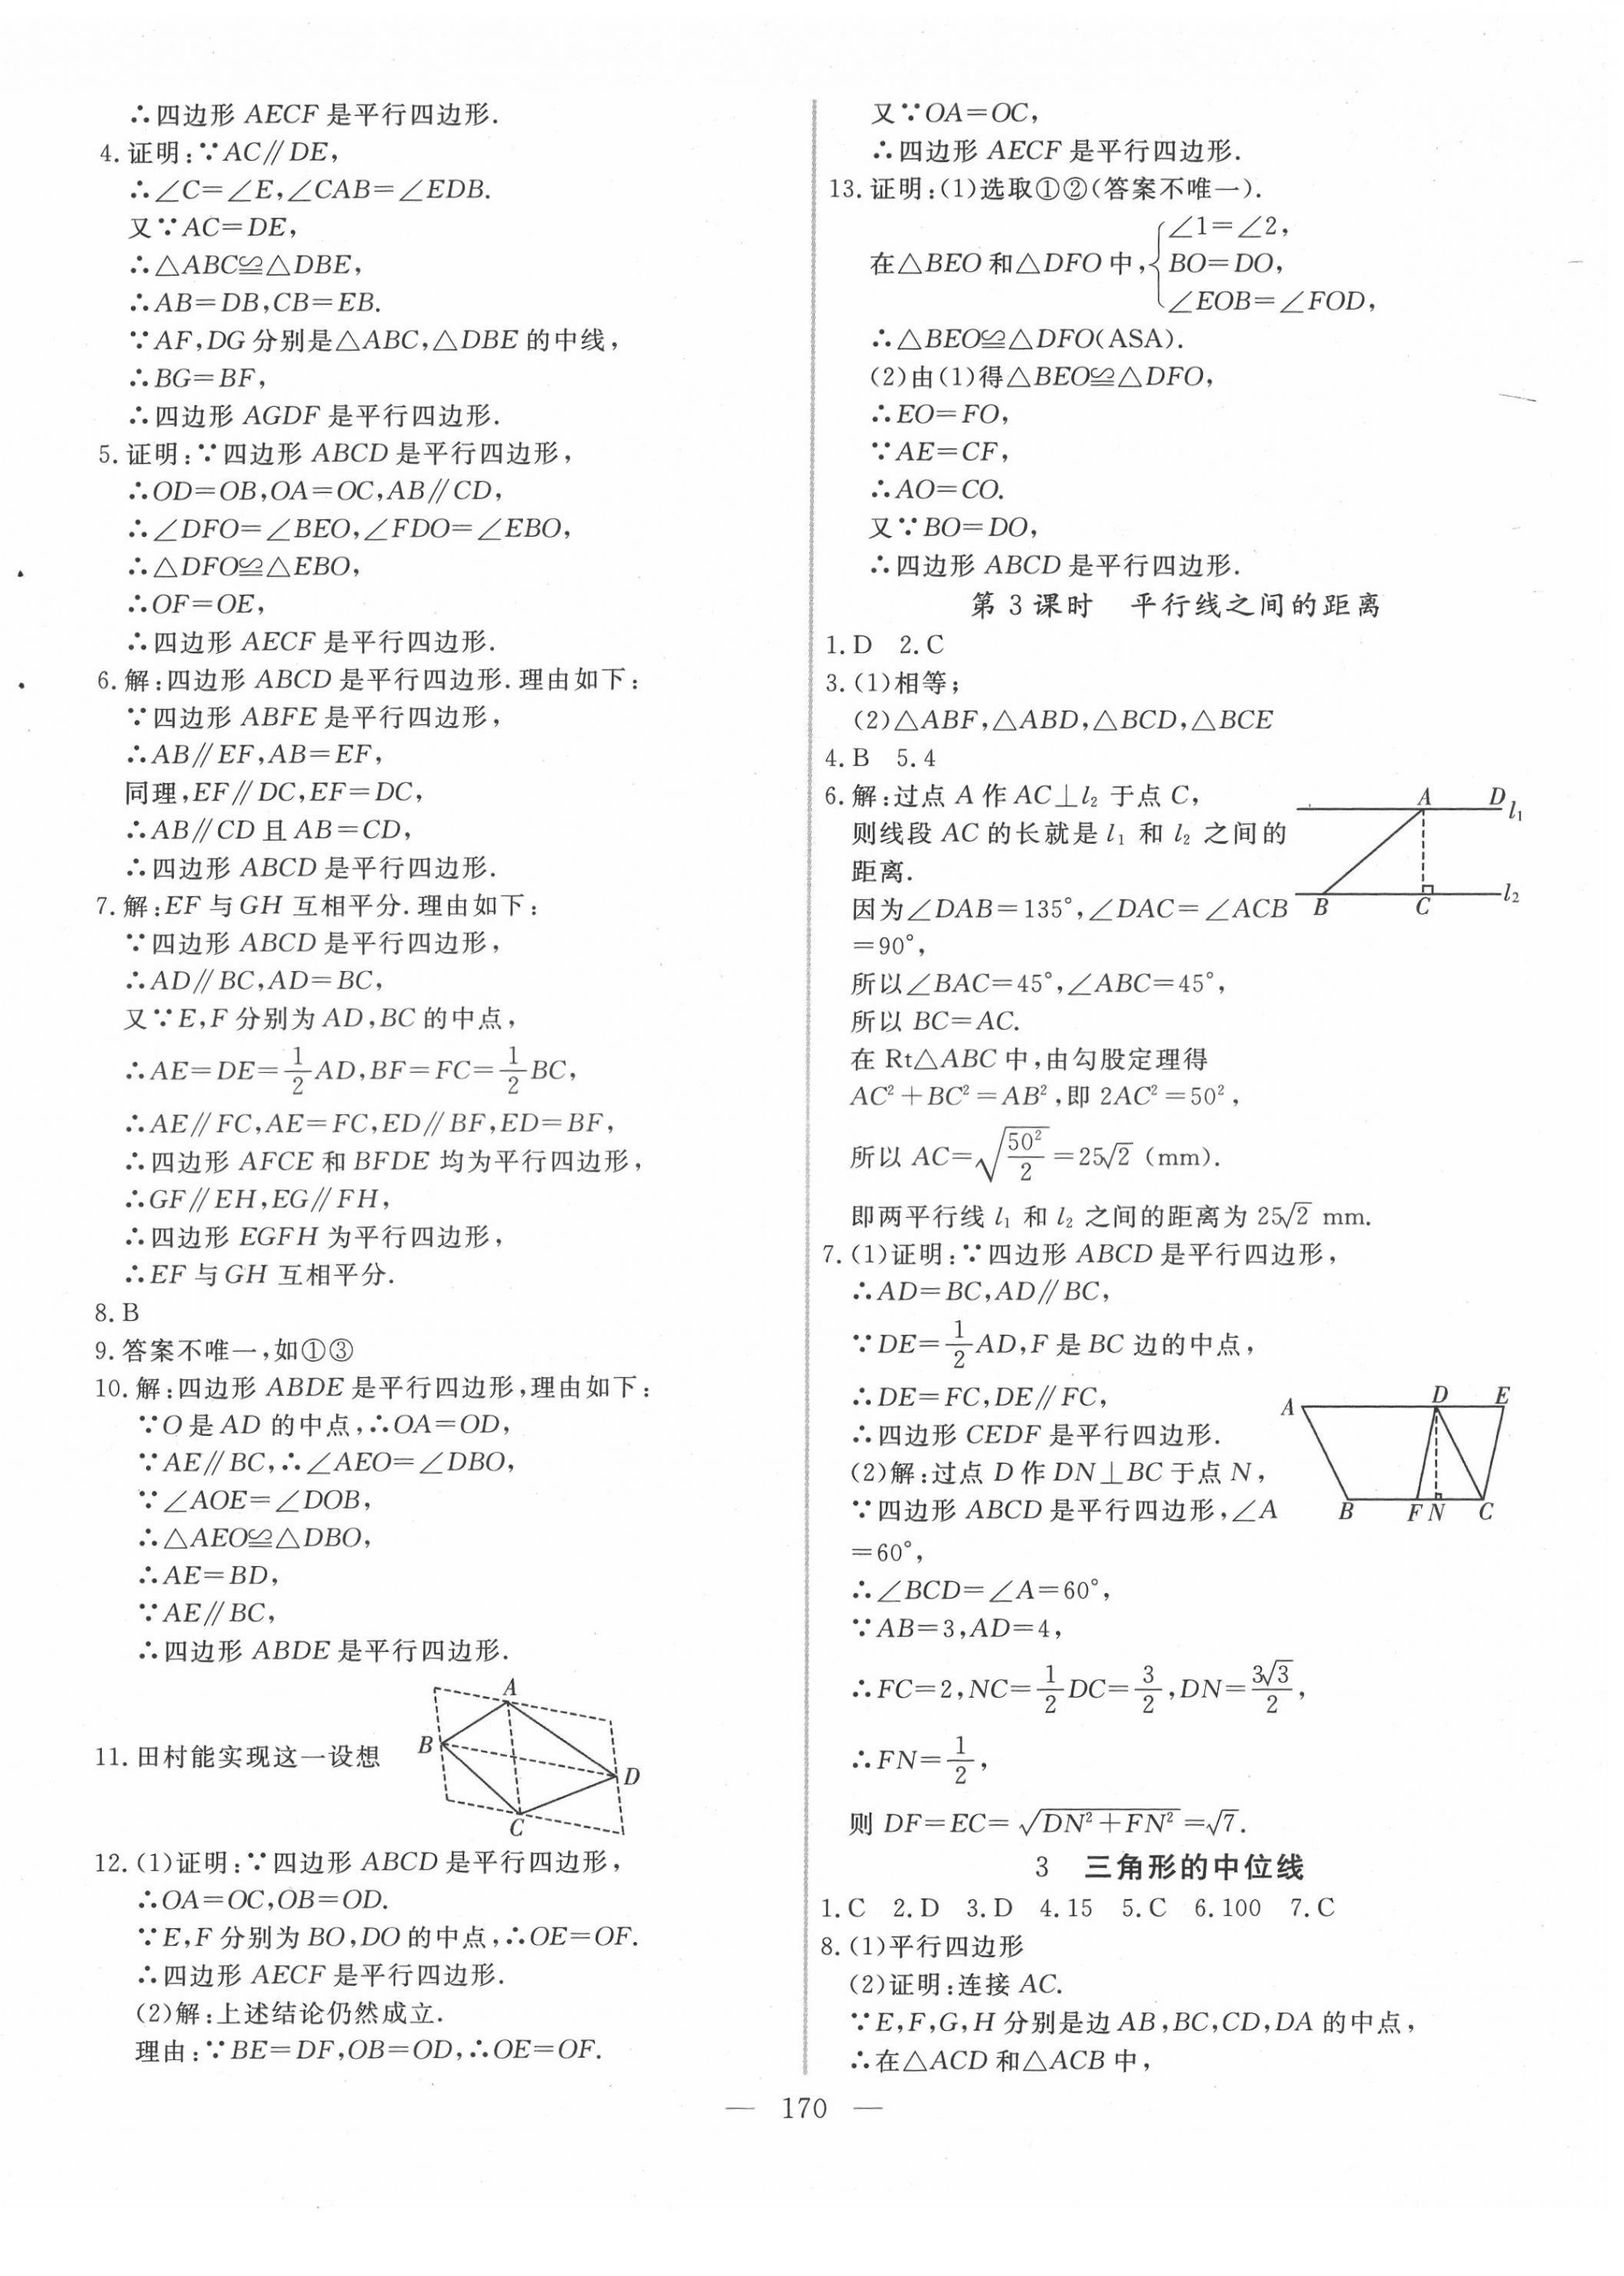 ∴四边形 AECF 是平行四边形.
4. 证明:∵AC∥DE,
∴∠C=∠E,∠CAB=∠EDB.
又∵AC=DE,
∴△ABC≌△DBE,
∴AB=DB,CB=EB.
∵AF,DG 分别是△ABC,△DBE 的中线,
∴BG=BF,
∴四边形 AGDF 是平行四边形.
5. 证明:∵四边形 ABCD 是平行四边形,
∴OD=OB,OA=OC,AB∥CD,
∴∠DFO=∠BEO,∠FDO=∠EBO,
∴△DFO≌△EBO,
∴OF=OE,
∴四边形 AECF 是平行四边形.
6. 解:四边形 ABCD 是平行四边形.理由如下:
∵四边形 ABFE 是平行四边形,
∴AB∥EF,AB=EF,
同理,EF∥DC,EF=DC,
∴AB∥CD 且 AB=CD,
∴四边形 ABCD 是平行四边形.
7. 解:EF 与 GH 互相平分.理由如下:
∵四边形 ABCD 是平行四边形,
∴AD∥BC,AD=BC,
又∵E,F 分别为 AD,BC 的中点,
∴AE=DE=1/2 AD,BF=FC=1/2 BC,
∴AE∥FC,AE=FC,ED∥BF,ED=BF,
∴四边形 AFCE 和 BFDE 均为平行四边形,
∴GF∥EH,EG∥FH,
∴四边形 EGFH 为平行四边形,
∴EF 与 GH 互相平分.
8. B
9. 答案不唯一,如①③
10. 解:四边形 ABDE 是平行四边形,理由如下:
∵O 是 AD 的中点,∴OA=OD,
∵AE∥BC,∴∠AEO=∠DBO,
∵∠AOE=∠DOB,
∴△AEO≌△DBO,
∴AE=BD,
∵AE∥BC,
∴四边形 ABDE 是平行四边形.
11. 田村能实现这一设想
A
B
D
C
12. (1)证明:∵四边形 ABCD 是平行四边形,
∴OA=OC,OB=OD.
∵E,F 分别为 BO,DO 的中点,∴OE=OF.
∴四边形 AECF 是平行四边形.
(2)解:上述结论仍然成立.
理由:∵BE=DF,OB=OD,∴OE=OF.
又∵OA=OC,
∴四边形 AECF 是平行四边形.
13. 证明:(1)选取①②(答案不唯一).
在△BEO 和△DFO 中,{∠1=∠2,
BO=DO,
∠EOB=∠FOD,
∴△BEO≌△DFO(ASA).
(2)由(1)得△BEO≌△DFO,
∴EO=FO,
∵AE=CF,
∴AO=CO.
又∵BO=DO,
∴四边形 ABCD 是平行四边形.
第 3 课时 平行线之间的距离
1. D 2. C
3. (1)相等;
(2)△ABF,△ABD,△BCD,△BCE
4. B 5. 4
6. 解:过点 A 作 AC⊥l₂ 于点 C,
则线段 AC 的长就是 l₁ 和 l₂ 之间的
距离.
因为∠DAB=135°,∠DAC=∠ACB
=90°,
A D l₁
B C l₂
所以∠BAC=45°,∠ABC=45°,
所以 BC=AC.
在 Rt△ABC 中,由勾股定理得
AC²+BC²=AB²,即 2AC²=50²,
所以 AC=√(50²/2)=25√2 (mm).
即两平行线 l₁ 和 l₂ 之间的距离为 25√2 mm.
7. (1)证明:∵四边形 ABCD 是平行四边形,
∴AD=BC,AD∥BC,
∵DE=1/2 AD,F 是 BC 边的中点,
∴DE=FC,DE∥FC,
∴四边形 CEDF 是平行四边形.
(2)解:过点 D 作 DN⊥BC 于点 N,
∵四边形 ABCD 是平行四边形,∠A
=60°,
A D E
B F N C
∴∠BCD=∠A=60°,
∵AB=3,AD=4,
∴FC=2,NC=1/2 DC=3/2,DN=3√3/2,
∴FN=1/2,
则 DF=EC=√(DN²+FN²)=√7.
3 三角形的中位线
1. C 2. D 3. D 4. 15 5. C 6. 100 7. C
8. (1)平行四边形
(2)证明:连接 AC.
∵E,F,G,H 分别是边 AB,BC,CD,DA 的中点,
∴在△ACD 和△ACB 中,
— 170 —